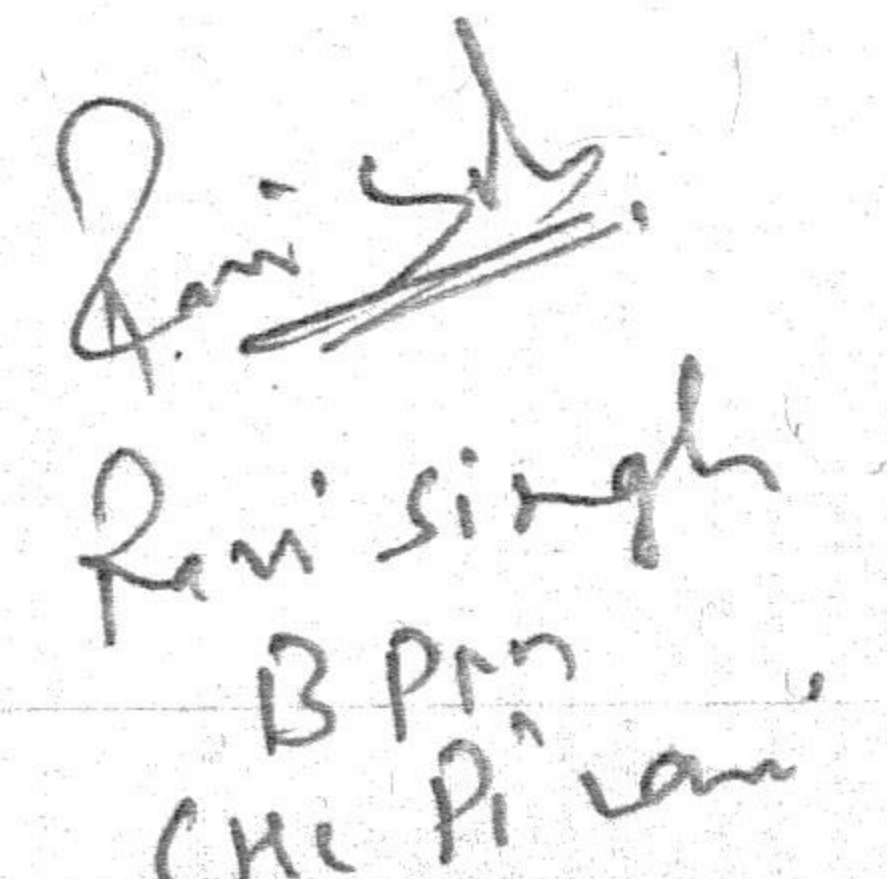 Ravi Singh
Ravi Singh
BPM
CHC Pilani